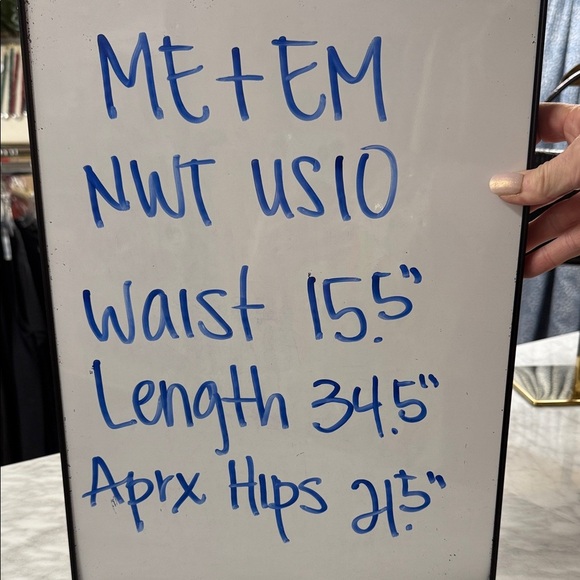 ME+EM
NWT US10
Waist 15.5"
Length 34.5"
Aprx Hips 21.5"